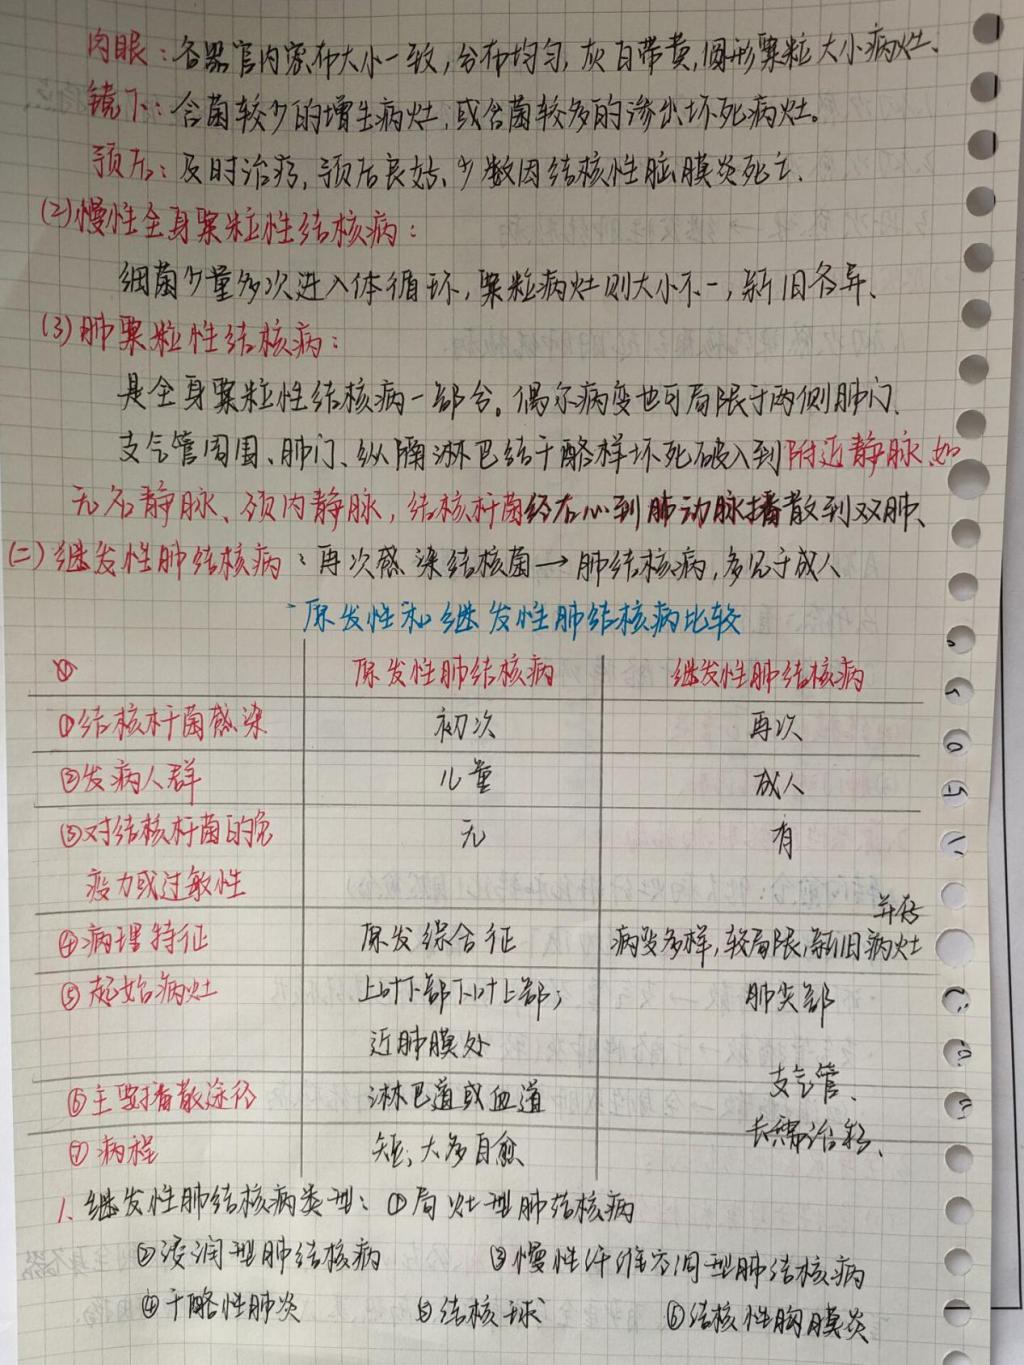 肉眼：各器官内密布大小一致，分布均匀，灰白带黄，圆形粟粒大小病灶、
镜下：含菌较少的增生病灶，或含菌较多的渗出坏死病灶。
预后：及时治疗，预后良好、少数因结核性脑膜炎死亡、
(2)慢性全身粟粒性结核病：
细菌少量多次进入体循环，粟粒病灶则大小不一，新旧各异、
(3)肺粟粒性结核病：
是全身粟粒性结核病一部分。偶尔病变也可局限于两侧肺门、
支气管周围、肺门、纵隔淋巴结干酪样坏死破入到附近静脉，如
无名静脉、颈内静脉，结核杆菌经右心到肺动脉播散到双肺、
(二)继发性肺结核病：再次感染结核菌→肺结核病，多见于成人
原发性和继发性肺结核病比较
原发性肺结核病 继发性肺结核病
①结核杆菌感染 初次 再次
②发病人群 儿童 成人
③对结核杆菌的免 无 有
疫力或过敏性
④病理特征 原发综合征 病变多样，较局限，新旧病灶并存
⑤起始病灶 上叶下部下叶上部； 肺尖部
近肺膜处
⑥主要播散途径 淋巴道或血道 支气管、
⑦病程 短，大多自愈 长，需治疗、
1、继发性肺结核病类型：①局灶型肺结核病
②浸润型肺结核病 ③慢性纤维空洞型肺结核病
④干酪性肺炎 ⑤结核球 ⑥结核性胸膜炎